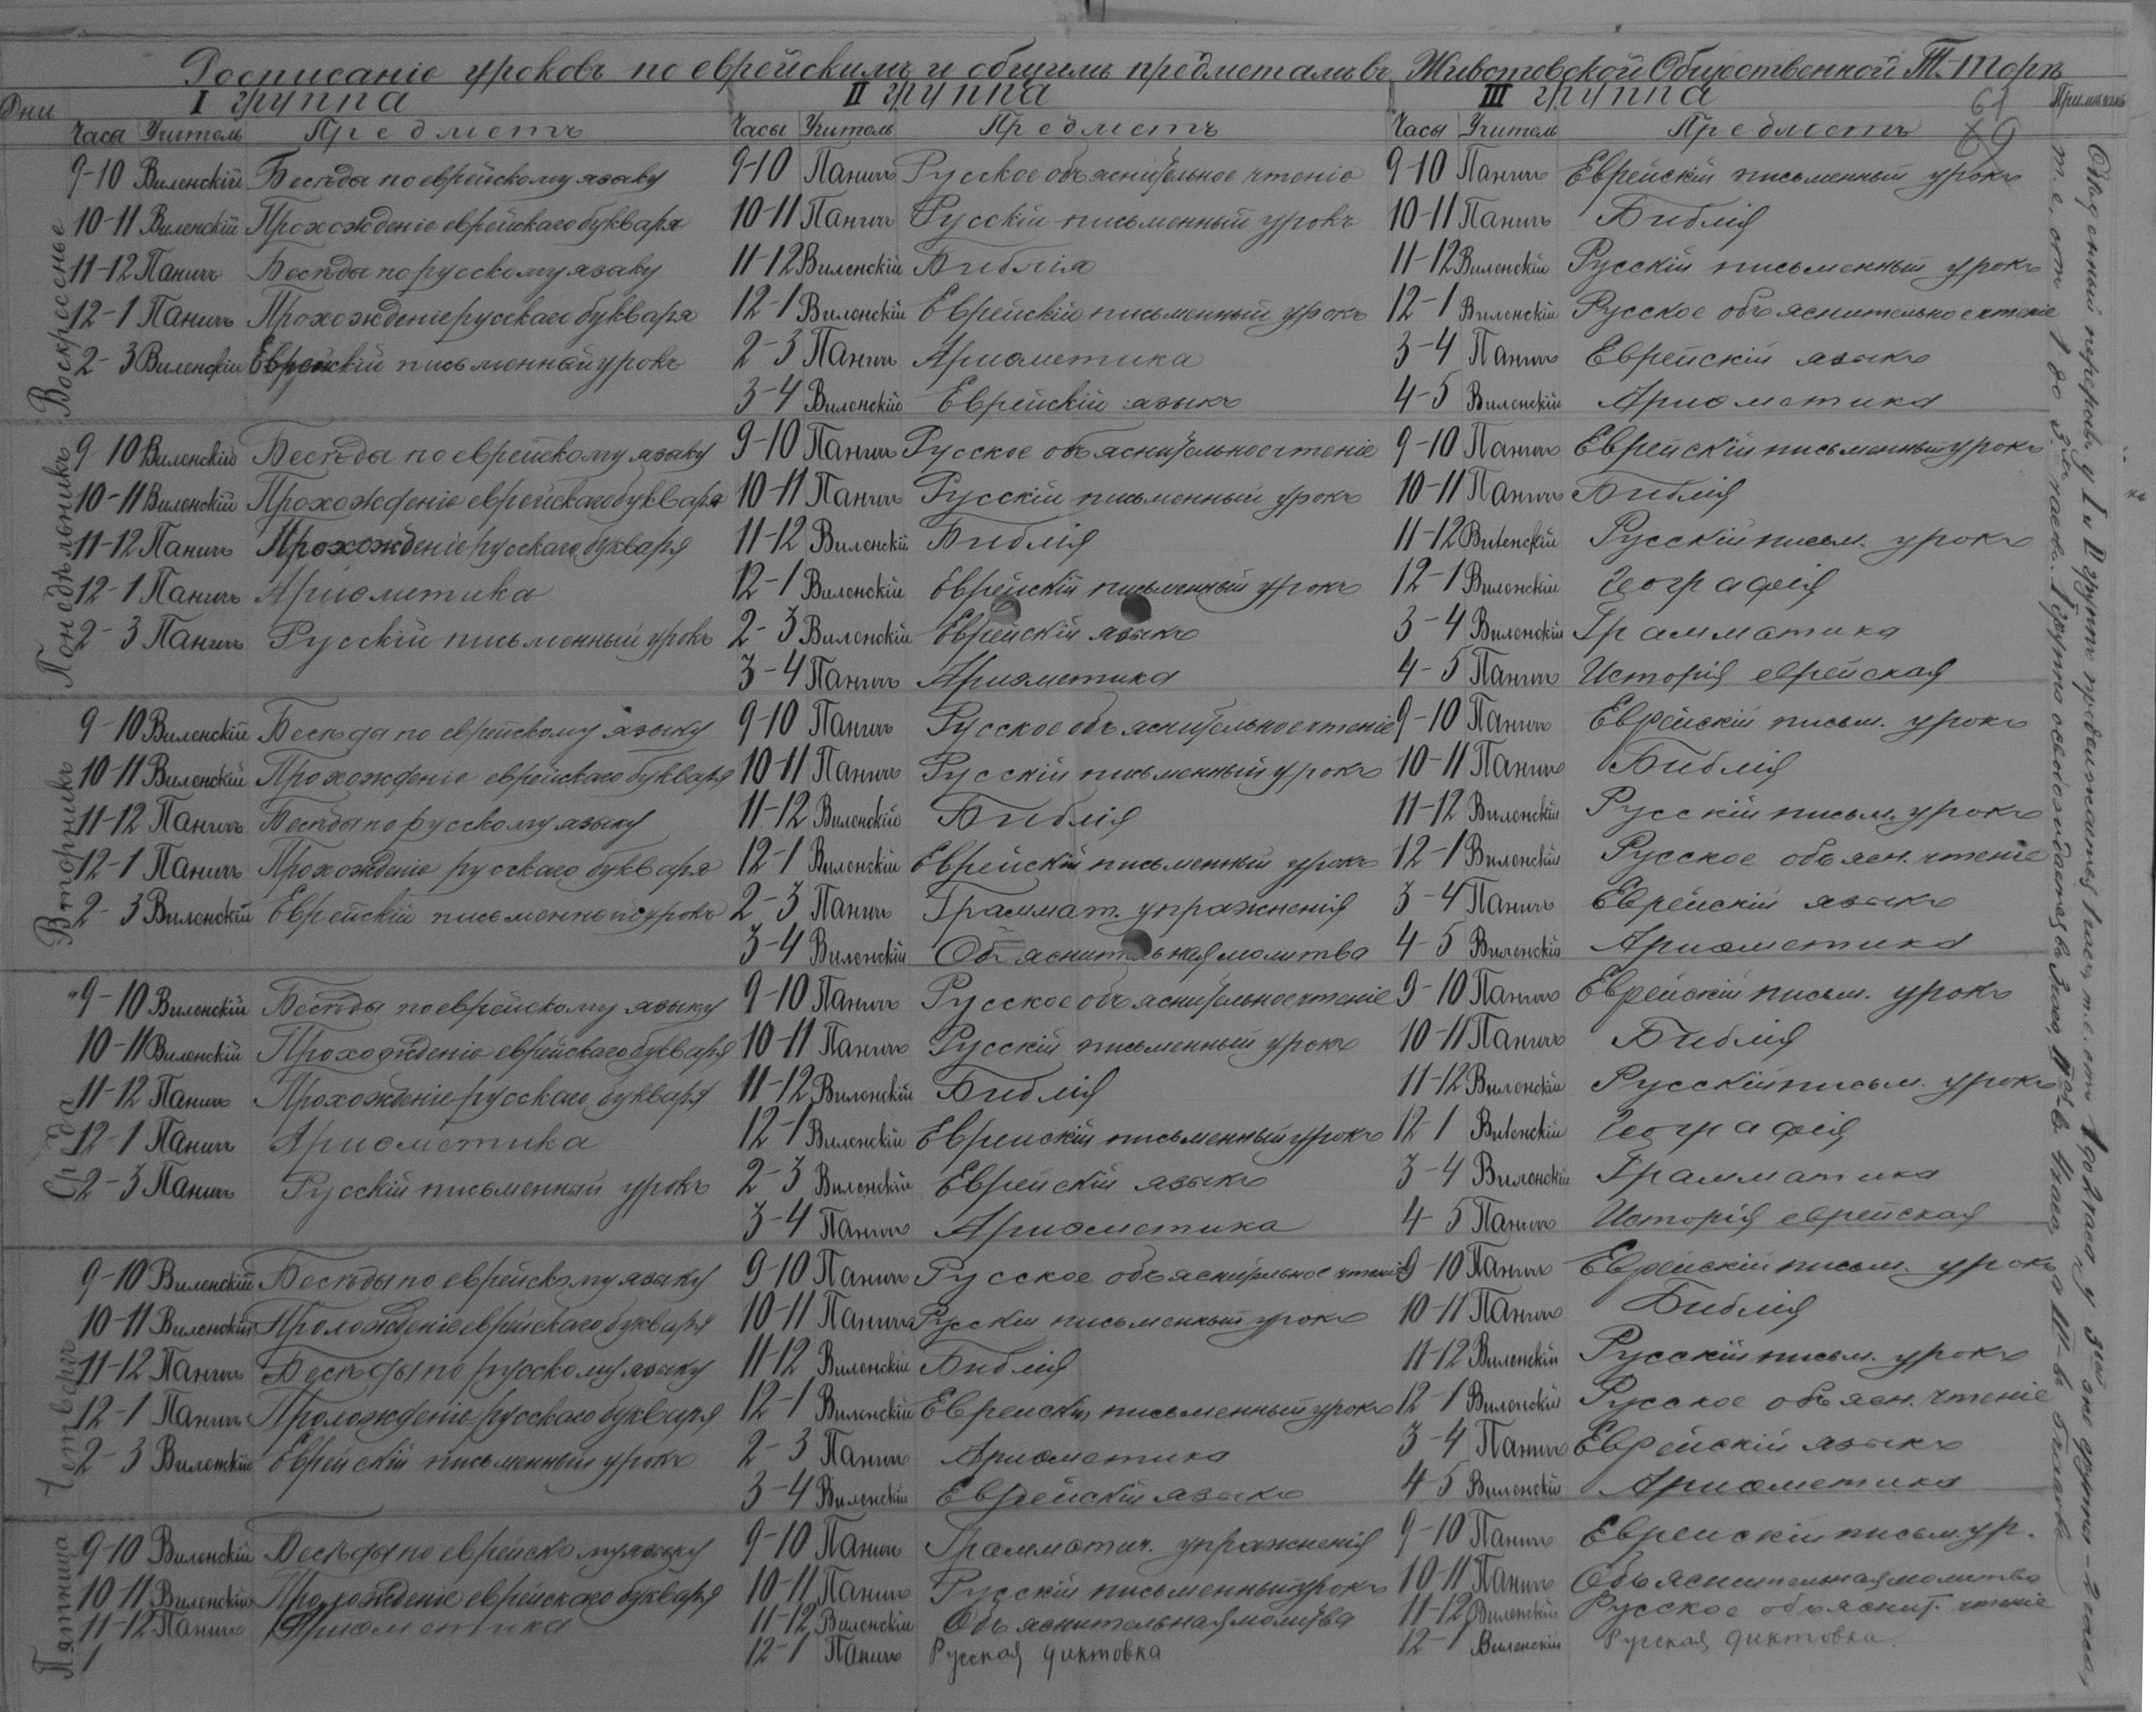 Росписаніе уроковъ по еврейскимъ и общимъ предметамъ въ Животовской Общественной Т.-Торѣ
Дни I группа II группа III группа Примѣчан.
61
69
Часы Учитель Предметъ Часы Учитель Предметъ Часы Учитель Предметъ
Воскресенье
9-10 Виленскій Бесѣда по еврейскому языку 9-10 Паничъ Русское объяснительное чтеніе 9-10 Паничъ Еврейскій письменный урокъ
10-11 Виленскій Прохожденіе еврейскаго букваря 10-11 Паничъ Русскій письменный урокъ 10-11 Паничъ Библія
11-12 Паничъ Бесѣда по русскому языку 11-12 Виленскій Библія 11-12 Виленскій Русскій письменный урокъ
12-1 Паничъ Прохожденіе русскаго букваря 12-1 Виленскій Еврейскій письменный урокъ 12-1 Виленскій Русское объяснительное чтеніе
2-3 Виленскій Еврейскій письменный урокъ 2-3 Паничъ Ариѳметика 3-4 Паничъ Еврейскій языкъ
3-4 Виленскій Еврейскій языкъ 4-5 Виленскій Ариѳметика
Понедѣльникъ
9-10 Виленскій Бесѣда по еврейскому языку 9-10 Паничъ Русское объяснительное чтеніе 9-10 Паничъ Еврейскій письменный урокъ
10-11 Виленскій Прохожденіе еврейскаго букваря 10-11 Паничъ Русскій письменный урокъ 10-11 Паничъ Библія
11-12 Паничъ Прохожденіе русскаго букваря 11-12 Виленскій Библія 11-12 Виленскій Русскій письм. урокъ
12-1 Паничъ Ариѳметика 12-1 Виленскій Еврейскій письменный урокъ 12-1 Виленскій Географія
2-3 Паничъ Русскій письменный урокъ 2-3 Виленскій Еврейскій языкъ 3-4 Виленскій Грамматика
3-4 Паничъ Ариѳметика 4-5 Паничъ Исторія еврейская
Вторникъ
9-10 Виленскій Бесѣда по еврейскому языку 9-10 Паничъ Русское объяснительное чтеніе 9-10 Паничъ Еврейскій письм. урокъ
10-11 Виленскій Прохожденіе еврейскаго букваря 10-11 Паничъ Русскій письменный урокъ 10-11 Паничъ Библія
11-12 Паничъ Бесѣда по русскому языку 11-12 Виленскій Библія 11-12 Виленскій Русскій письм. урокъ
12-1 Паничъ Прохожденіе русскаго букваря 12-1 Виленскій Еврейскій письменный урокъ 12-1 Виленскій Русское объясн. чтеніе
2-3 Виленскій Еврейскій письменный урокъ 2-3 Паничъ Граммат. упражненія 3-4 Паничъ Еврейскій языкъ
3-4 Виленскій Объяснительная молитва 4-5 Виленскій Ариѳметика
Среда
9-10 Виленскій Бесѣды по еврейскому языку 9-10 Паничъ Русское объяснительное чтеніе 9-10 Паничъ Еврейскій письм. урокъ
10-11 Виленскій Прохожденіе еврейскаго букваря 10-11 Паничъ Русскій письменный урокъ 10-11 Паничъ Библія
11-12 Паничъ Прохожденіе русскаго букваря 11-12 Виленскій Библія 11-12 Виленскій Русскій письм. урокъ
12-1 Паничъ Ариѳметика 12-1 Виленскій Еврейскій письменный урокъ 12-1 Виленскій Географія
2-3 Паничъ Русскій письменный урокъ 2-3 Виленскій Еврейскій языкъ 3-4 Виленскій Грамматика
3-4 Паничъ Ариѳметика 4-5 Паничъ Исторія еврейская
Четвергъ
9-10 Виленскій Бесѣды по еврейскому языку 9-10 Паничъ Русское объяснительное чтеніе 9-10 Паничъ Еврейскій письм. урокъ
10-11 Виленскій Прохожденіе еврейскаго букваря 10-11 Паничъ Русскій письменный урокъ 10-11 Паничъ Библія
11-12 Паничъ Бесѣды по русскому языку 11-12 Виленскій Библія 11-12 Виленскій Русскій письм. урокъ
12-1 Паничъ Прохожденіе русскаго букваря 12-1 Виленскій Еврейскій письменный урокъ 12-1 Виленскій Русское объясн. чтеніе
2-3 Виленскій Еврейскій письменный урокъ 2-3 Паничъ Ариѳметика 3-4 Паничъ Еврейскій языкъ
3-4 Виленскій Еврейскій языкъ 4-5 Виленскій Ариѳметика
Пятница
9-10 Виленскій Бесѣды по еврейскому языку 9-10 Паничъ Грамматич. упражненія 9-10 Паничъ Еврейскій письм. ур.
10-11 Виленскій Прохожденіе еврейскаго букваря 10-11 Паничъ Русскій письменный урокъ 10-11 Паничъ Объяснительная молитва
11-12 Паничъ Ариѳметика 11-12 Виленскій Объяснительная молитва 11-12 Виленскій Русское объяснит. чтеніе
1 12-1 Паничъ Русская диктовка 12-1 Виленскій Русская диктовка.
Обѣденный перерывъ у I и II группъ продолжается 1 часъ, т. е. отъ 1 до 2 часа, у 3-ей же группы - 2 часа,
т. е. отъ 1 до 3-хъ часовъ. I группа освобождается въ 3 часа, II-ая - въ 4 часа, а III - въ 5 часовъ